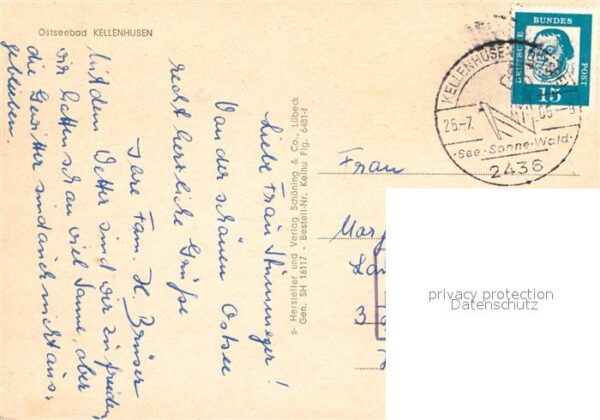 Ostseebad KELLENHUSEN
Liebe Frau
Von der schönen Ostsee
recht herrliche Grüße
Ihre Fam. H. Brüser
Mit dem Wetter sind wir zufrieden
wir hatten schon viel Sonne, aber
die Gewitter sind auch nicht aus-
geblieben.
s- Hersteller und Verlag Schöning & Co., Lübeck
Gen. SH 16117 - Bestell-Nr. Kelhu Fig. 6481-I
DEUTSCHE BUNDES POST
15
KELLENHUSEN
25.-7.
-9
·See·Sonne·Wald·
2436
Frau
3
privacy protection
Datenschutz